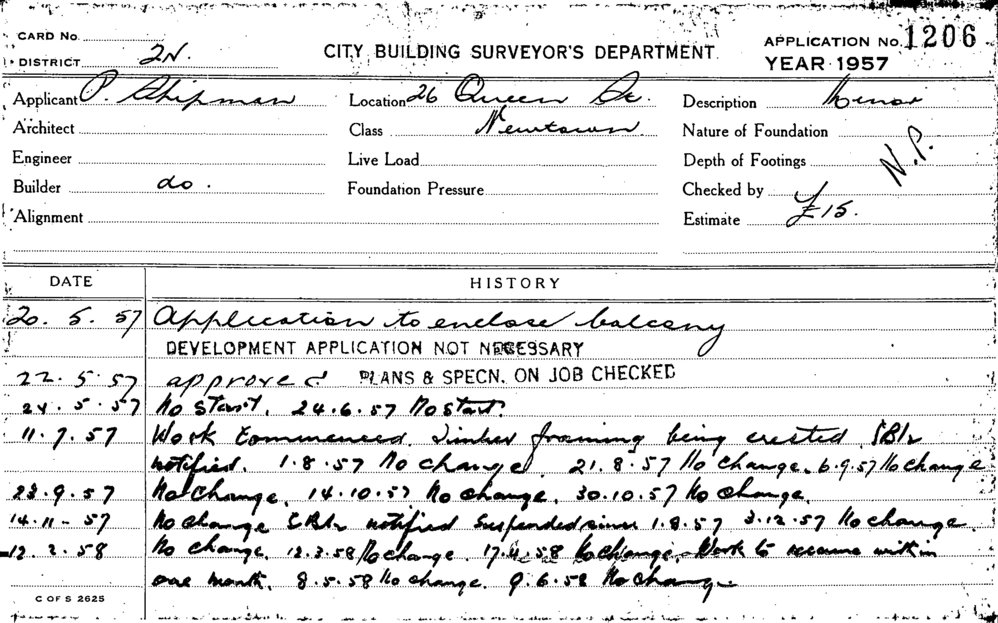 CARD No.
DISTRICT 2N.
CITY BUILDING SURVEYOR'S DEPARTMENT
APPLICATION No. 1206
YEAR 1957
Applicant P. Shipman Location 26 Queen St. Description Minor
Architect Class Newtown. Nature of Foundation
Engineer Live Load Depth of Footings N.P.
Builder do. Foundation Pressure Checked by
Alignment Estimate £15.
DATE HISTORY
20. 5. 57 Application to enclose balcony
DEVELOPMENT APPLICATION NOT NECESSARY
22. 5. 57 approved PLANS & SPECN. ON JOB CHECKED
24. 5. 57 No Start. 24.6.57 No Start.
11. 7. 57 Work Commenced. Timber framing being erected.
notified. 1.8.57 No change. 21.8.57 No change. 6.9.57 No change
23.9.57 No Change. 14.10.57 No change. 30.10.57 No change.
14.11-57 No change notified Suspended since 1.8.57 3.12.57 No change.
12.2.58 No change. 12.3.58 No change. 17.4.58 No change. Work to resume within
one month. 8.5.58 No change. 9.6.58 No change
C OF S 2625